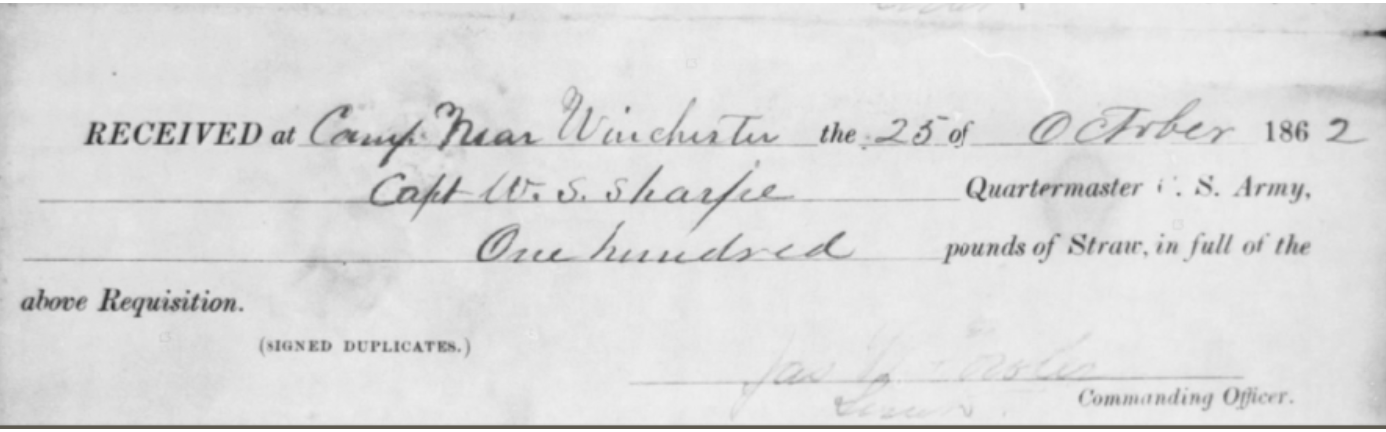 RECEIVED at Camp Near Winchester the 25 of October 1862
Capt W. S. Sharpe Quartermaster C. S. Army,
One hundred pounds of Straw, in full of the
above Requisition.
(SIGNED DUPLICATES.)
Jas
Commanding Officer.